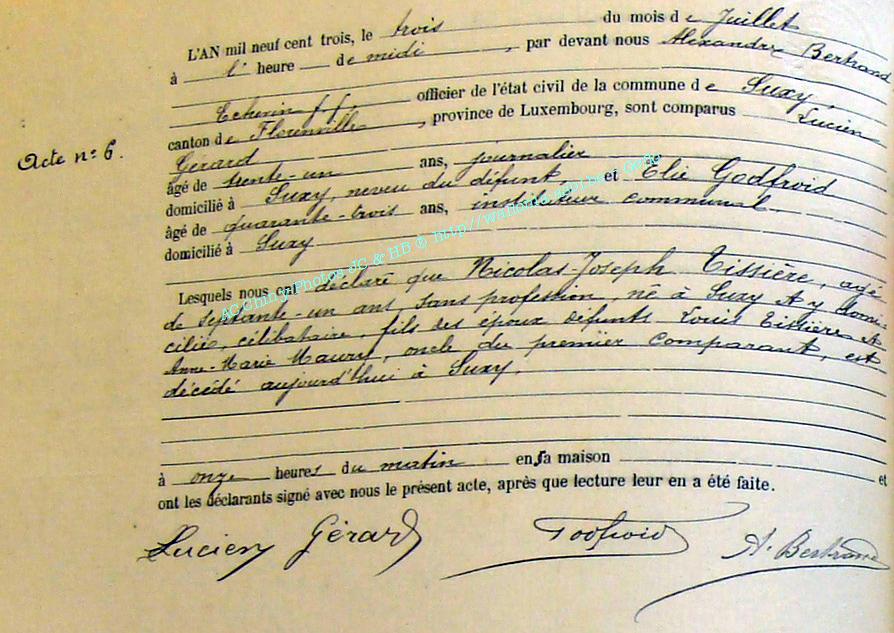 L'AN mil neuf cent trois, le trois du mois de Juillet
à l' heure de midi, par devant nous Alexandre Bertrand
Echevin f.f. officier de l'état civil de la commune de Suxy
canton de Florenville, province de Luxembourg, sont comparus Lucien
Acte n° 6.
Gérard
âgé de trente-un ans, journalier
domicilié à Suxy, neveu du défunt, et Elie Godfroid
âgé de quarante-trois ans, instituteur communal
domicilié à Suxy
Lesquels nous ont déclaré que Nicolas-Joseph Tissière, agé
de septante-un ans sans profession, né à Suxy & y domi-
cilié, célibataire, fils des époux défunts Louis Tissière &
Anne-Marie Maury, oncle du premier comparant, est
décédé aujourd'hui à Suxy.
à onze heures du matin en sa maison et
ont les déclarants signé avec nous le présent acte, après que lecture leur en a été faite.
Lucien Gérard Godfroid A. Bertrand